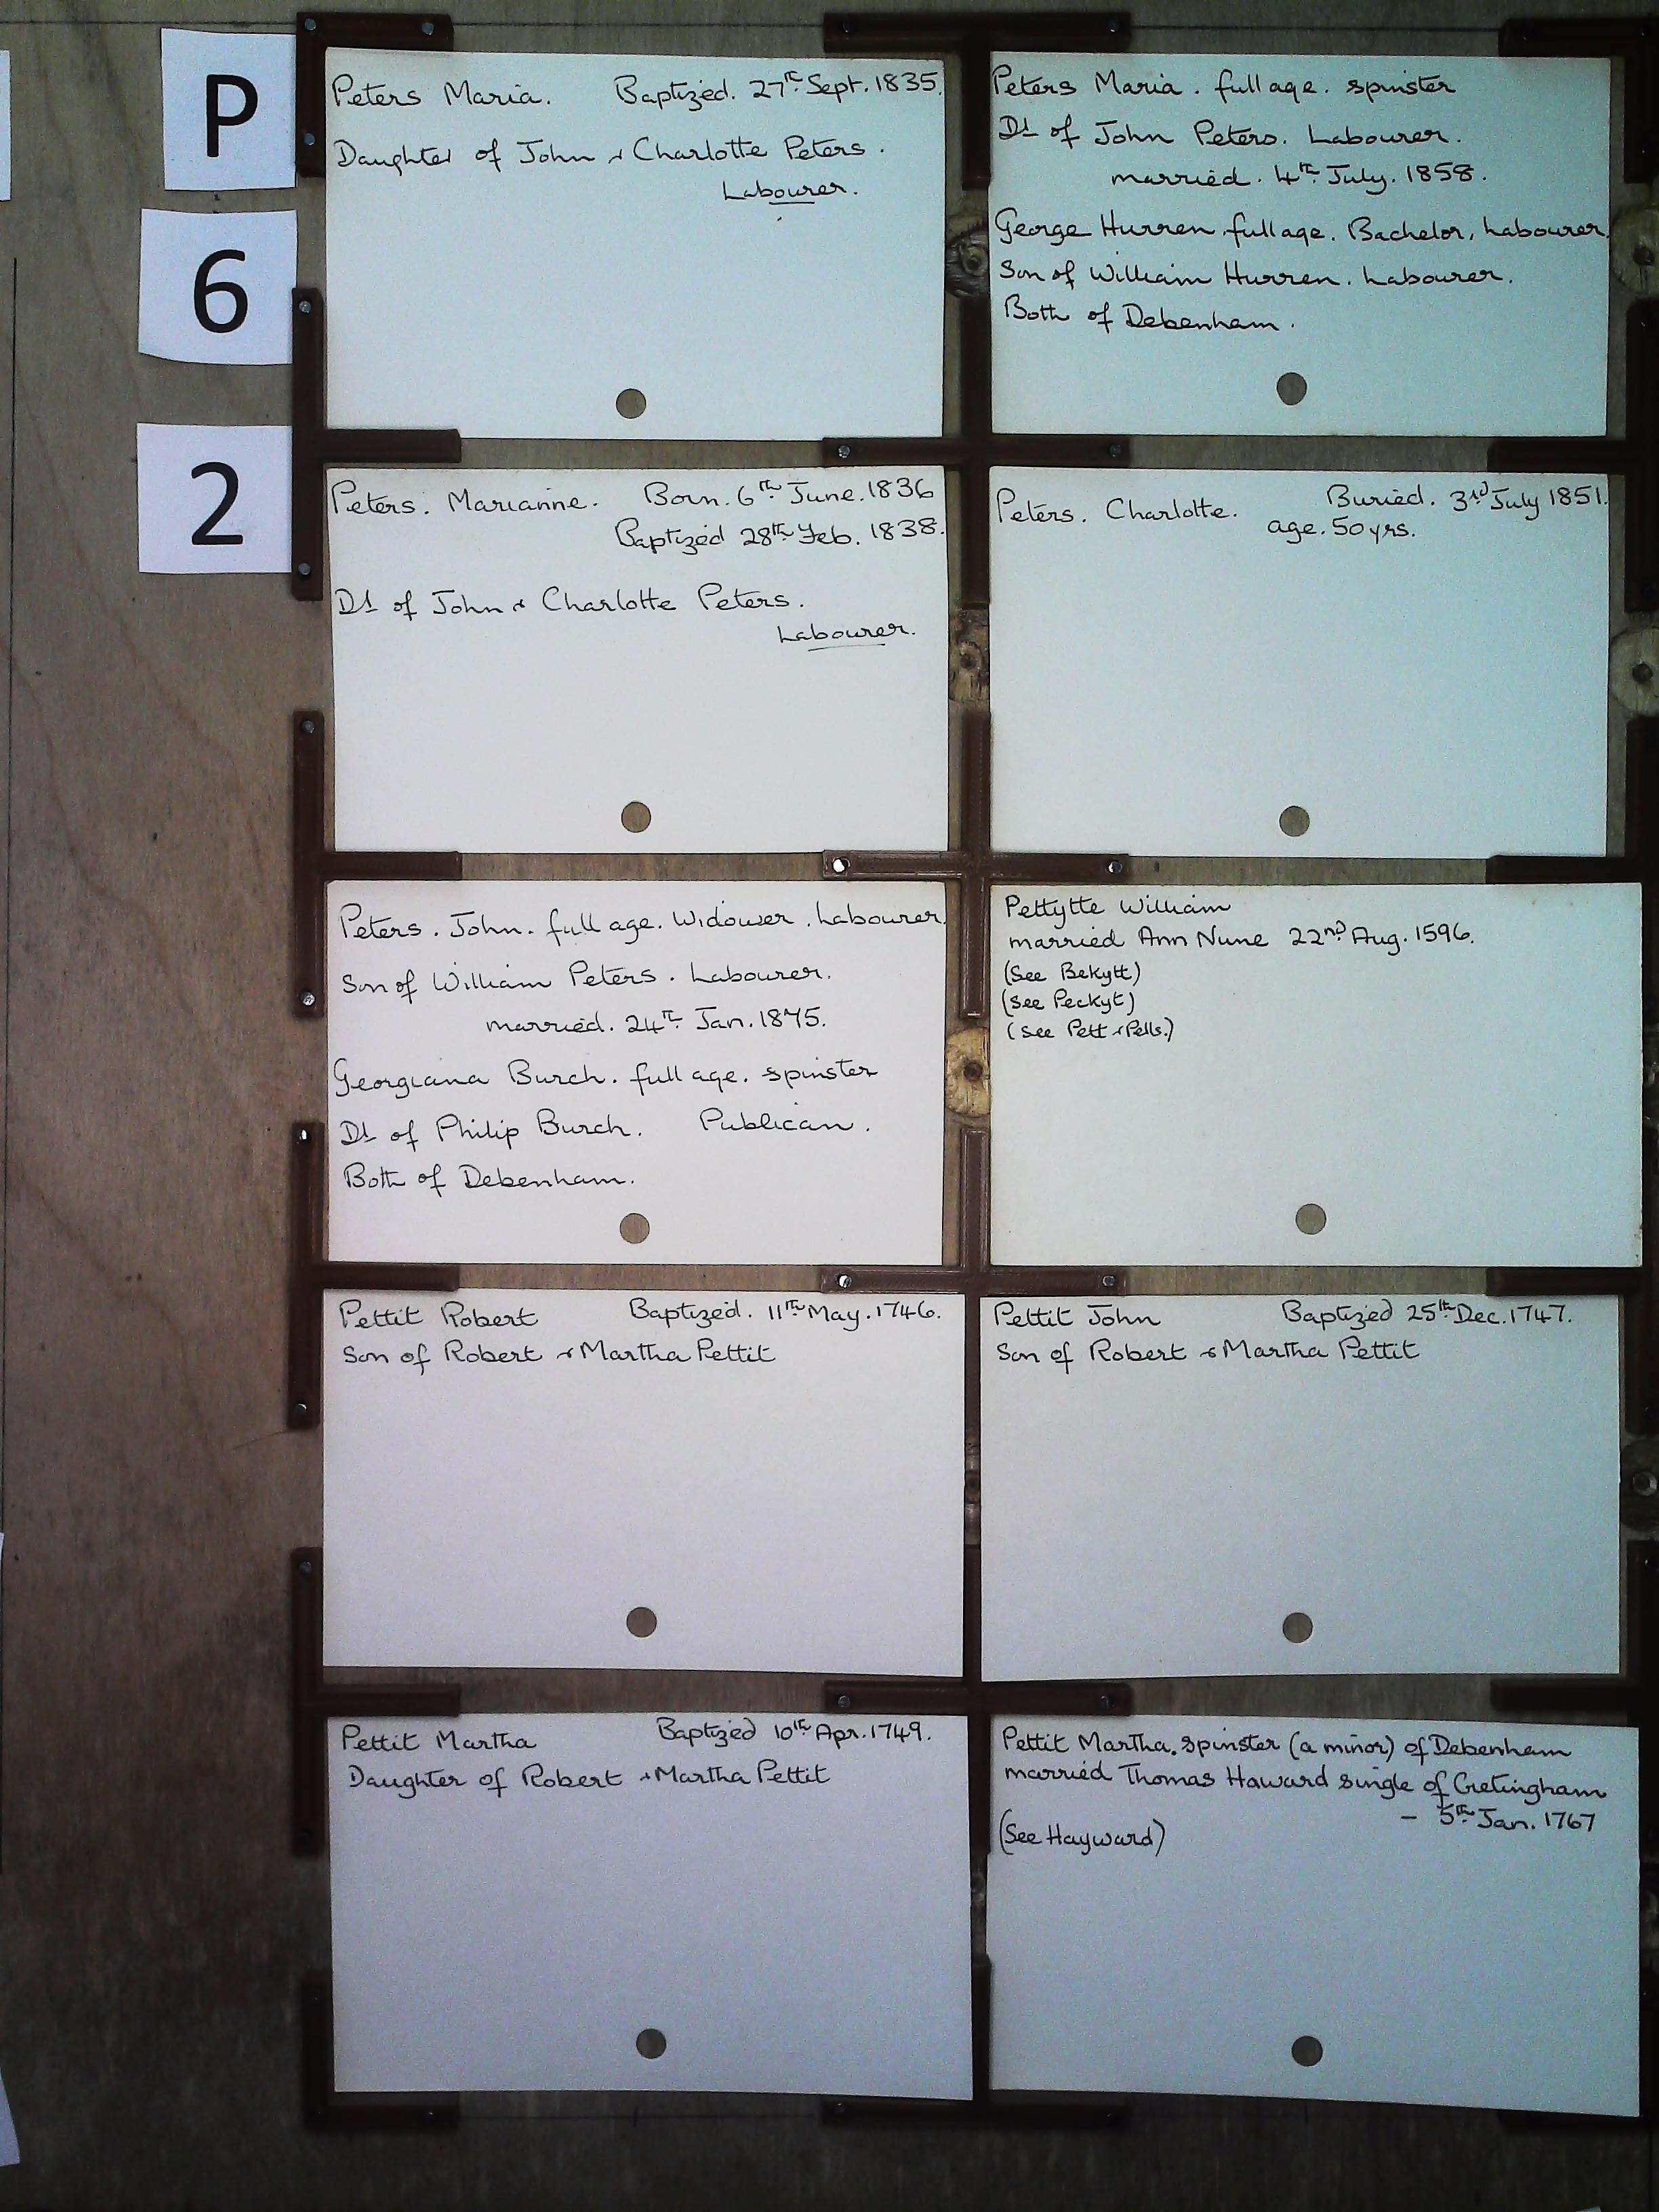 P
6
2
Peters Maria. Baptized. 27th Sept. 1835.
Daughter of John & Charlotte Peters.
Labourer.
Peters Maria. full age. spinster
Dt of John Peters. Labourer.
married. 4th July. 1858.
George Hurren full age. Bachelor, Labourer.
Son of William Hurren. Labourer.
Both of Debenham.
Peters. Marianne. Born. 6th June. 1836
Baptized 28th Feb. 1838.
Dt of John & Charlotte Peters.
Labourer.
Peters. Charlotte. Buried. 3rd July 1851.
age. 50 yrs.
Peters. John. full age. Widower. Labourer.
Son of William Peters. Labourer.
married. 24th Jan. 1875.
Georgiana Burch. full age. spinster
Dt of Philip Burch. Publican.
Both of Debenham.
Pettytte William
married Ann Nune 22nd Aug. 1596.
(See Bekytt)
(See Peckyt)
(See Pett & Pells.)
Pettit Robert Baptized. 11th May. 1746.
Son of Robert & Martha Pettit
Pettit John Baptized 25th Dec. 1747.
Son of Robert & Martha Pettit
Pettit Martha Baptized 10th Apr. 1749.
Daughter of Robert & Martha Pettit
Pettit Martha. spinster (a minor) of Debenham
married Thomas Haward single of Cretingham
- 5th Jan. 1767
(See Hayward)